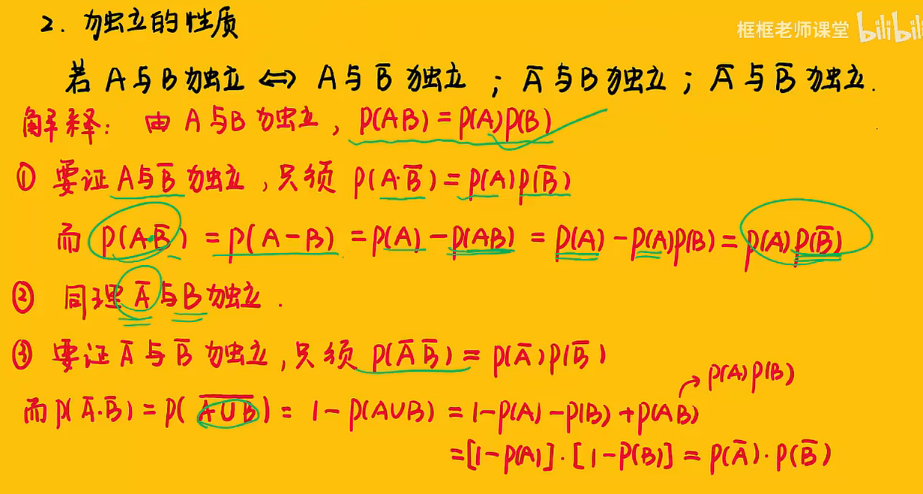 2. 独立的性质
框框老师课堂 bilibili
若 A与B独立 ⇔ A与B̅ 独立 ; A̅与B独立 ; A̅与B̅ 独立.
解释: 由 A与B独立, P(AB)=P(A)P(B)
① 要证 A与B̅ 独立, 只须 P(A·B̅)=P(A)P(B̅)
而 P(A·B̅) = P(A-B) = P(A)-P(AB) = P(A)-P(A)P(B) = P(A)P(B̅)
② 同理 A̅与B独立.
③ 要证 A̅与B̅ 独立, 只须 P(A̅ B̅) = P(A̅)P(B̅)
→ P(A)P(B)
而 P(A̅·B̅) = P(A̅∪̅B̅) = 1-P(A∪B) = 1-P(A)-P(B)+P(AB)
=[1-P(A)]·[1-P(B)] = P(A̅)·P(B̅)